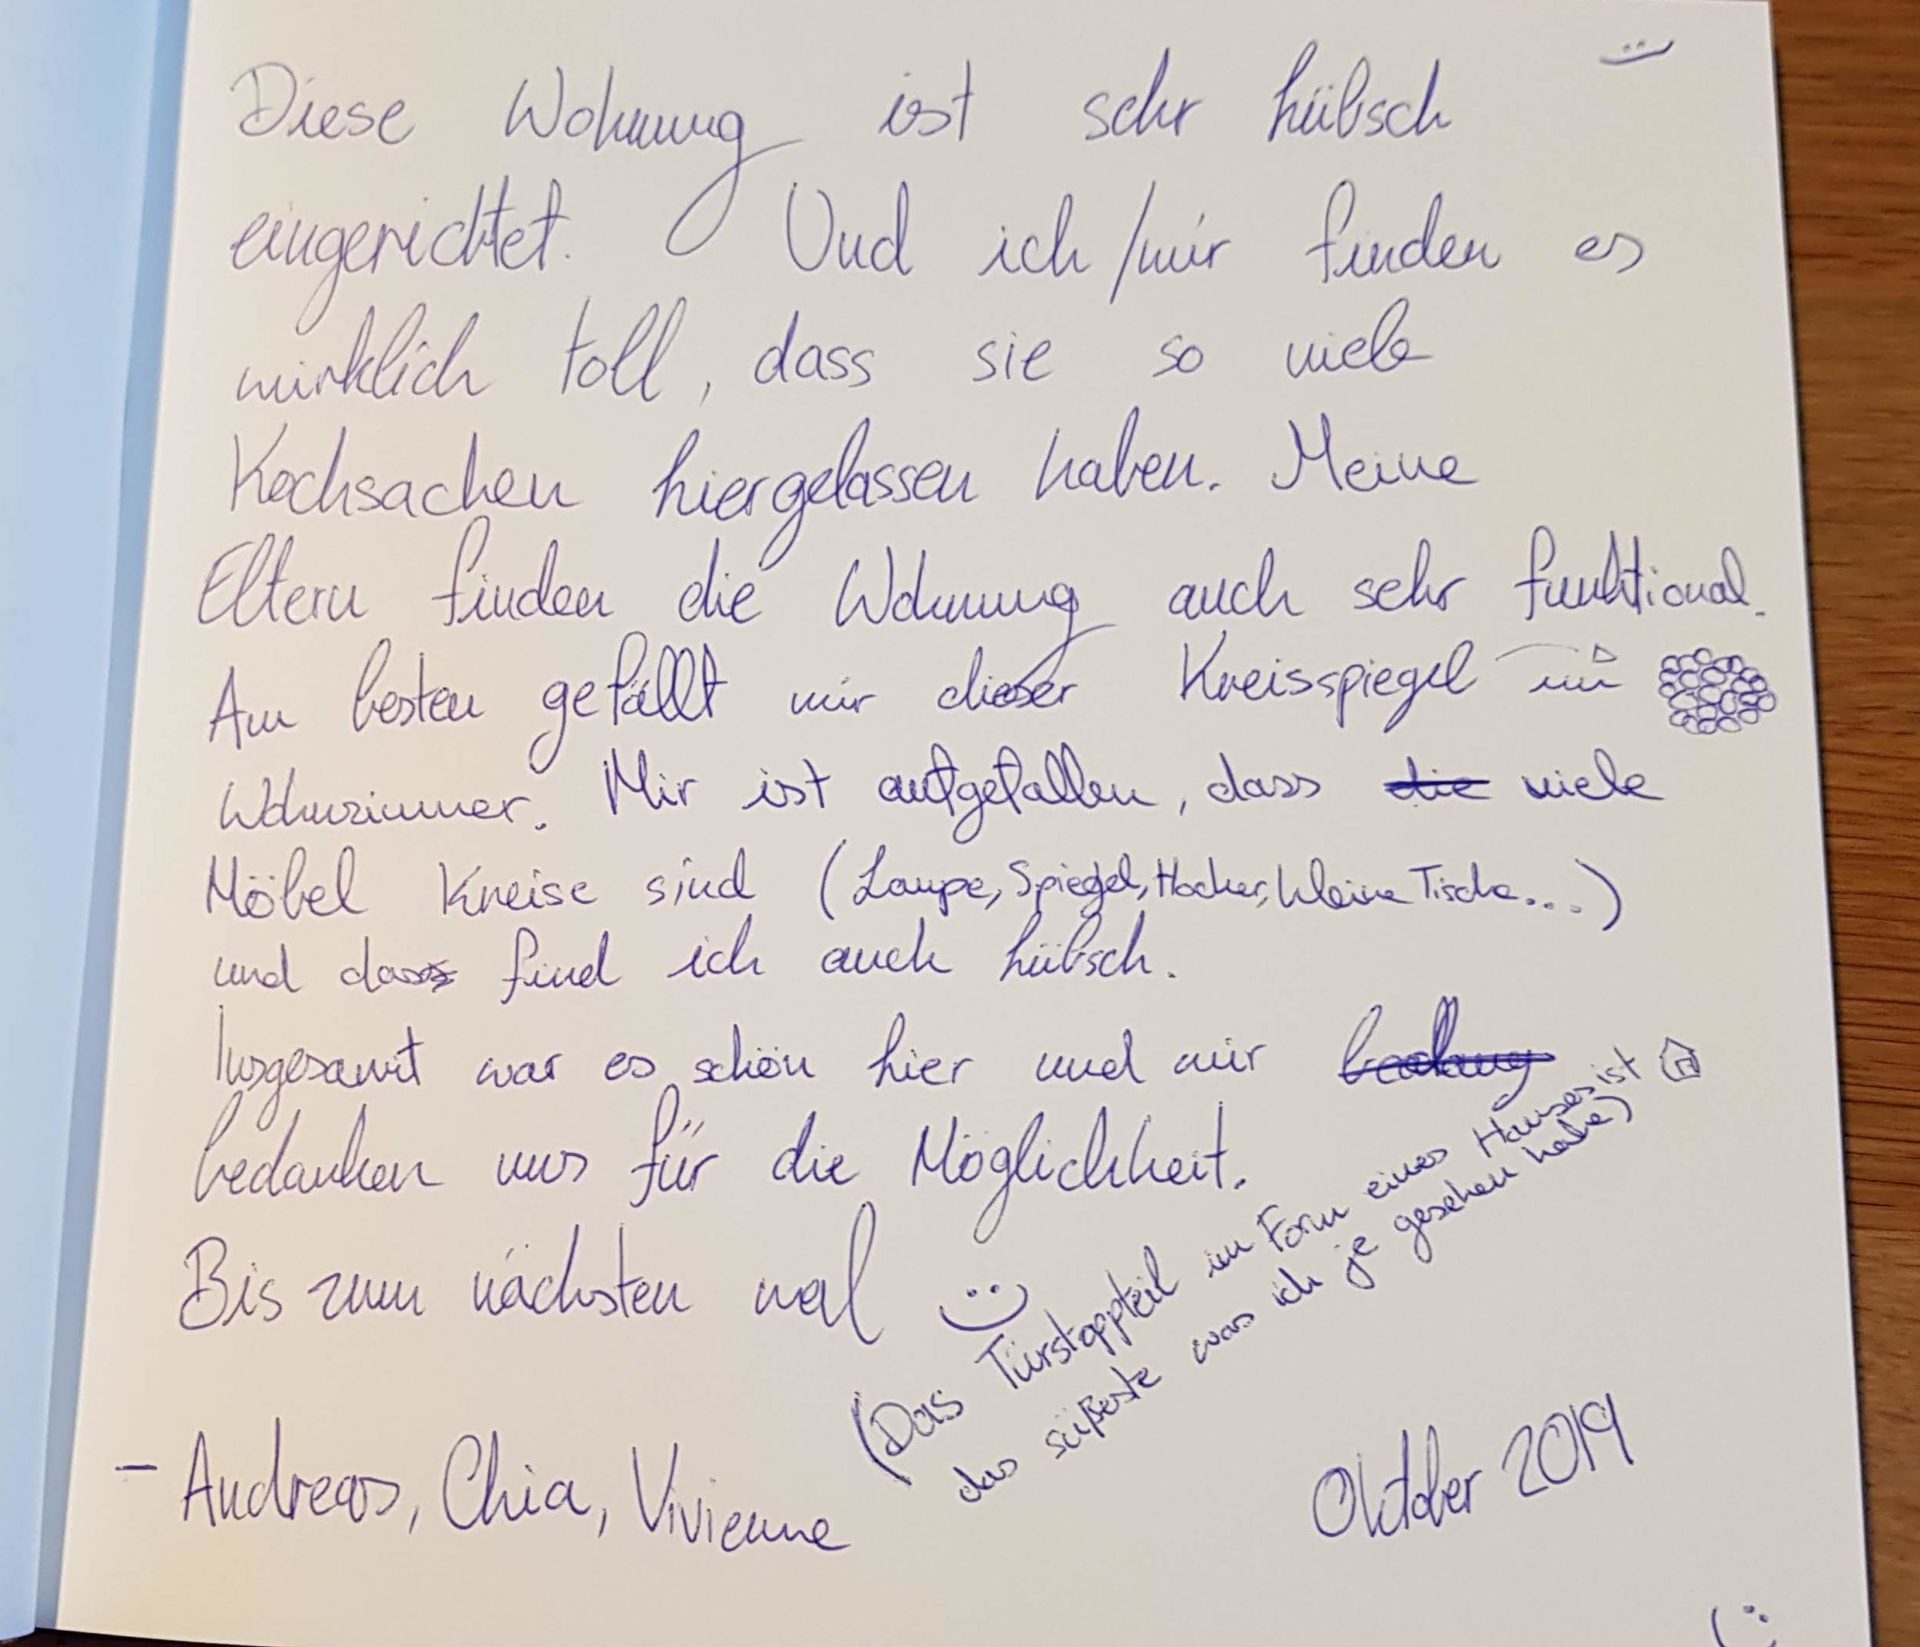 Diese Wohnung ist sehr hübsch
eingerichtet. Und ich/wir finden es
wirklich toll, dass sie so viele
Kochsachen hiergelassen haben. Meine
Eltern finden die Wohnung auch sehr funktional.
Am besten gefällt mir dieser Kreisspiegel im
Wohnzimmer. Mir ist aufgefallen, dass die viele
Möbel Kreise sind (Lampe, Spiegel, Hocker, kleine Tische...)
und das find ich auch hübsch.
Insgesamt war es schön hier und wir
bedanken uns für die Möglichkeit.
Bis zum nächsten mal
(Das Türstoppteil im Form eines Hauses ist
das süßeste was ich je gesehen habe)
- Andreas, Chia, Vivienne
Oktober 2019